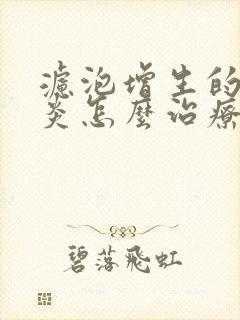 濾泡增生的
炎怎麼治療
碧落飛虹